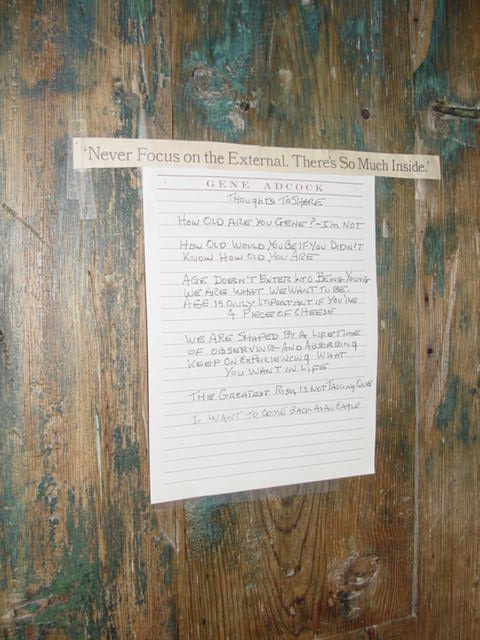 'Never Focus on the External. There's So Much Inside.'
GENE ADCOCK
THOUGHTS TO SHARE
HOW OLD ARE YOU GENE? - I'M NOT
HOW OLD WOULD YOU BE IF YOU DIDN'T
KNOW HOW OLD YOU ARE
AGE DOESN'T ENTER INTO BEING YOUNG
WE ARE WHAT WE WANT TO BE.
AGE IS ONLY IMPORTANT IF YOU'RE
A PIECE OF CHEESE
WE ARE SHAPED BY A LIFETIME
OF OBSERVING - AND ABSORBING
KEEP ON EXPERIENCING WHAT
YOU WANT IN LIFE
THE GREATEST RISK IS NOT TAKING ONE
I WANT TO COME BACK AS AN EAGLE